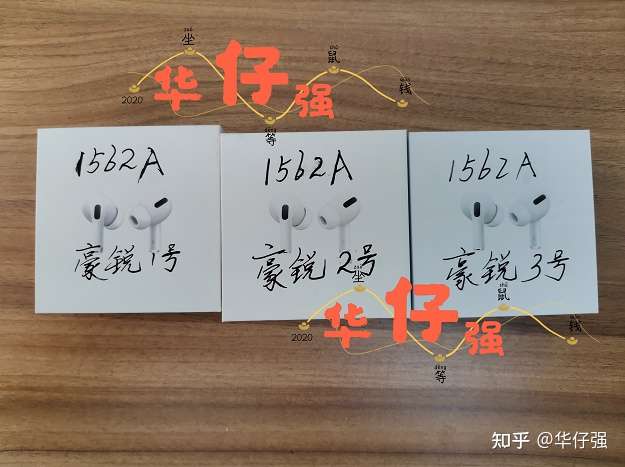 2020 坐 等 鼠 钱
华仔强
1562A
豪锐1号
1562A
豪锐2号
1562A
豪锐3号
2020 坐 等 鼠 钱
华仔强
知乎 @华仔强